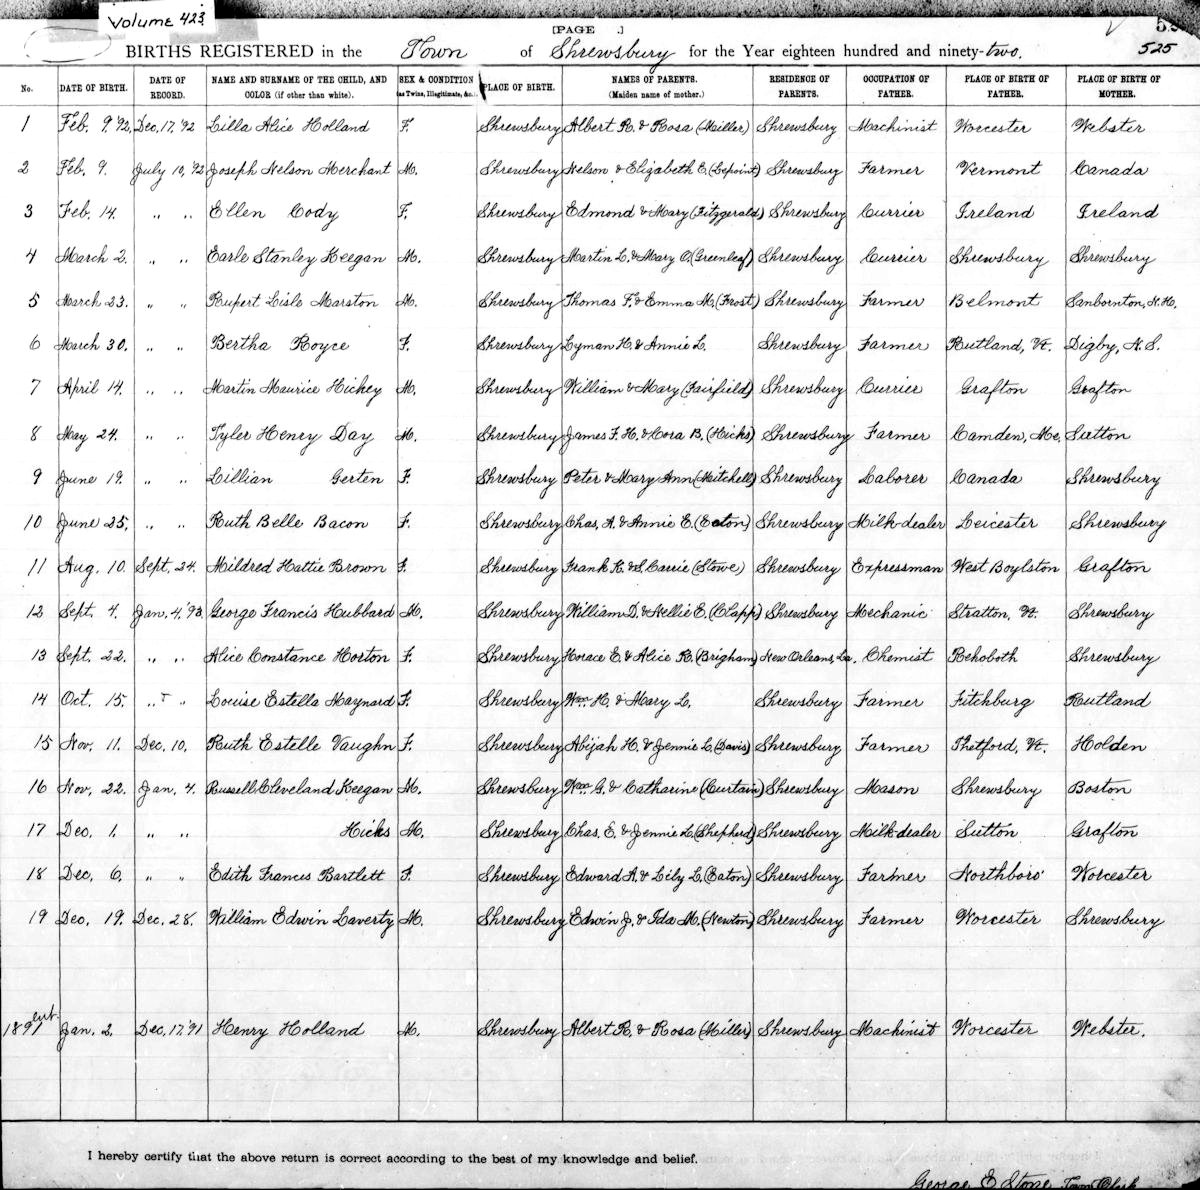 Volume 423
[PAGE .]
525
BIRTHS REGISTERED in the Town of Shrewsbury for the Year eighteen hundred and ninety-two.
No. DATE OF BIRTH. DATE OF RECORD. NAME AND SURNAME OF THE CHILD, AND COLOR (if other than white). SEX & CONDITION (as Twins, Illegitimate, &c.) PLACE OF BIRTH. NAMES OF PARENTS. (Maiden name of mother.) RESIDENCE OF PARENTS. OCCUPATION OF FATHER. PLACE OF BIRTH OF FATHER. PLACE OF BIRTH OF MOTHER.
1 Feb. 9, '92, Dec. 17, '92 Lilla Alice Holland F. Shrewsbury Albert R. & Rosa (Miller) Shrewsbury Machinist Worcester Webster
2 Feb. 9. July 10, '92 Joseph Nelson Merchant M. Shrewsbury Nelson & Elizabeth E. (Lepoint) Shrewsbury Farmer Vermont Canada
3 Feb. 14. " " Ellen Cody F. Shrewsbury Edmond & Mary (Fitzgerald) Shrewsbury Currier Ireland Ireland
4 March 2. " " Earle Stanley Keegan M. Shrewsbury Martin L. & Mary O. (Greenleaf) Shrewsbury Currier Shrewsbury Shrewsbury
5 March 23. " " Rupert Lisle Marston M. Shrewsbury Thomas F. & Emma M. (Frost) Shrewsbury Farmer Belmont Sanbornton, N.H.
6 March 30. " " Bertha Royce F. Shrewsbury Lyman H. & Annie L. Shrewsbury Farmer Rutland, Vt. Digby, N.S.
7 April 14. " " Martin Maurice Hickey M. Shrewsbury William & Mary (Fairfield) Shrewsbury Currier Grafton Grafton
8 May 24. " " Tyler Henry Day M. Shrewsbury James F. H. & Cora B. (Hicks) Shrewsbury Farmer Camden, Me. Sutton
9 June 19. " " Lillian Gerten F. Shrewsbury Peter & Mary Ann (Mitchell) Shrewsbury Laborer Canada Shrewsbury
10 June 25, " " Ruth Belle Bacon F. Shrewsbury Chas. A. & Annie E. (Eaton) Shrewsbury Milk-dealer Leicester Shrewsbury
11 Aug. 10. Sept. 24. Mildred Hattie Brown F. Shrewsbury Frank K. & S. Carrie (Stowe) Shrewsbury Expressman West Boylston Grafton
12 Sept. 4. Jan. 4, '93. George Francis Hubbard M. Shrewsbury William D. & Nellie E. (Clapp) Shrewsbury Mechanic Stratton, Vt. Shrewsbury
13 Sept. 22. " " Alice Constance Horton F. Shrewsbury Horace E. & Alice R. (Brigham) New Orleans, La. Chemist Rehoboth Shrewsbury
14 Oct. 15. " " Louise Estella Maynard F. Shrewsbury Wm. H. & Mary L. Shrewsbury Farmer Fitchburg Rutland
15 Nov. 11. Dec. 10. Ruth Estelle Vaughn F. Shrewsbury Abijah H. & Jennie L. (Davis) Shrewsbury Farmer Thetford, Vt. Holden
16 Nov. 22. Jan. 4. Russell Cleveland Keegan M. Shrewsbury Wm. G. & Catharine (Curtain) Shrewsbury Mason Shrewsbury Boston
17 Dec. 1. " " Hicks M. Shrewsbury Chas. E. & Jennie L. (Shepherd) Shrewsbury Milk-dealer Sutton Grafton
18 Dec. 6. " " Edith Francis Bartlett F. Shrewsbury Edward A. & Lily L. (Eaton) Shrewsbury Farmer Northboro' Worcester
19 Dec. 19. Dec. 28. William Edwin Laverty M. Shrewsbury Edwin J. & Ida M. (Newton) Shrewsbury Farmer Worcester Shrewsbury
1891 ent. Jan. 2. Dec. 17, '91 Henry Holland M. Shrewsbury Albert R. & Rosa (Miller) Shrewsbury Machinist Worcester Webster.
I hereby certify that the above return is correct according to the best of my knowledge and belief.
George E. Stone Town Clerk